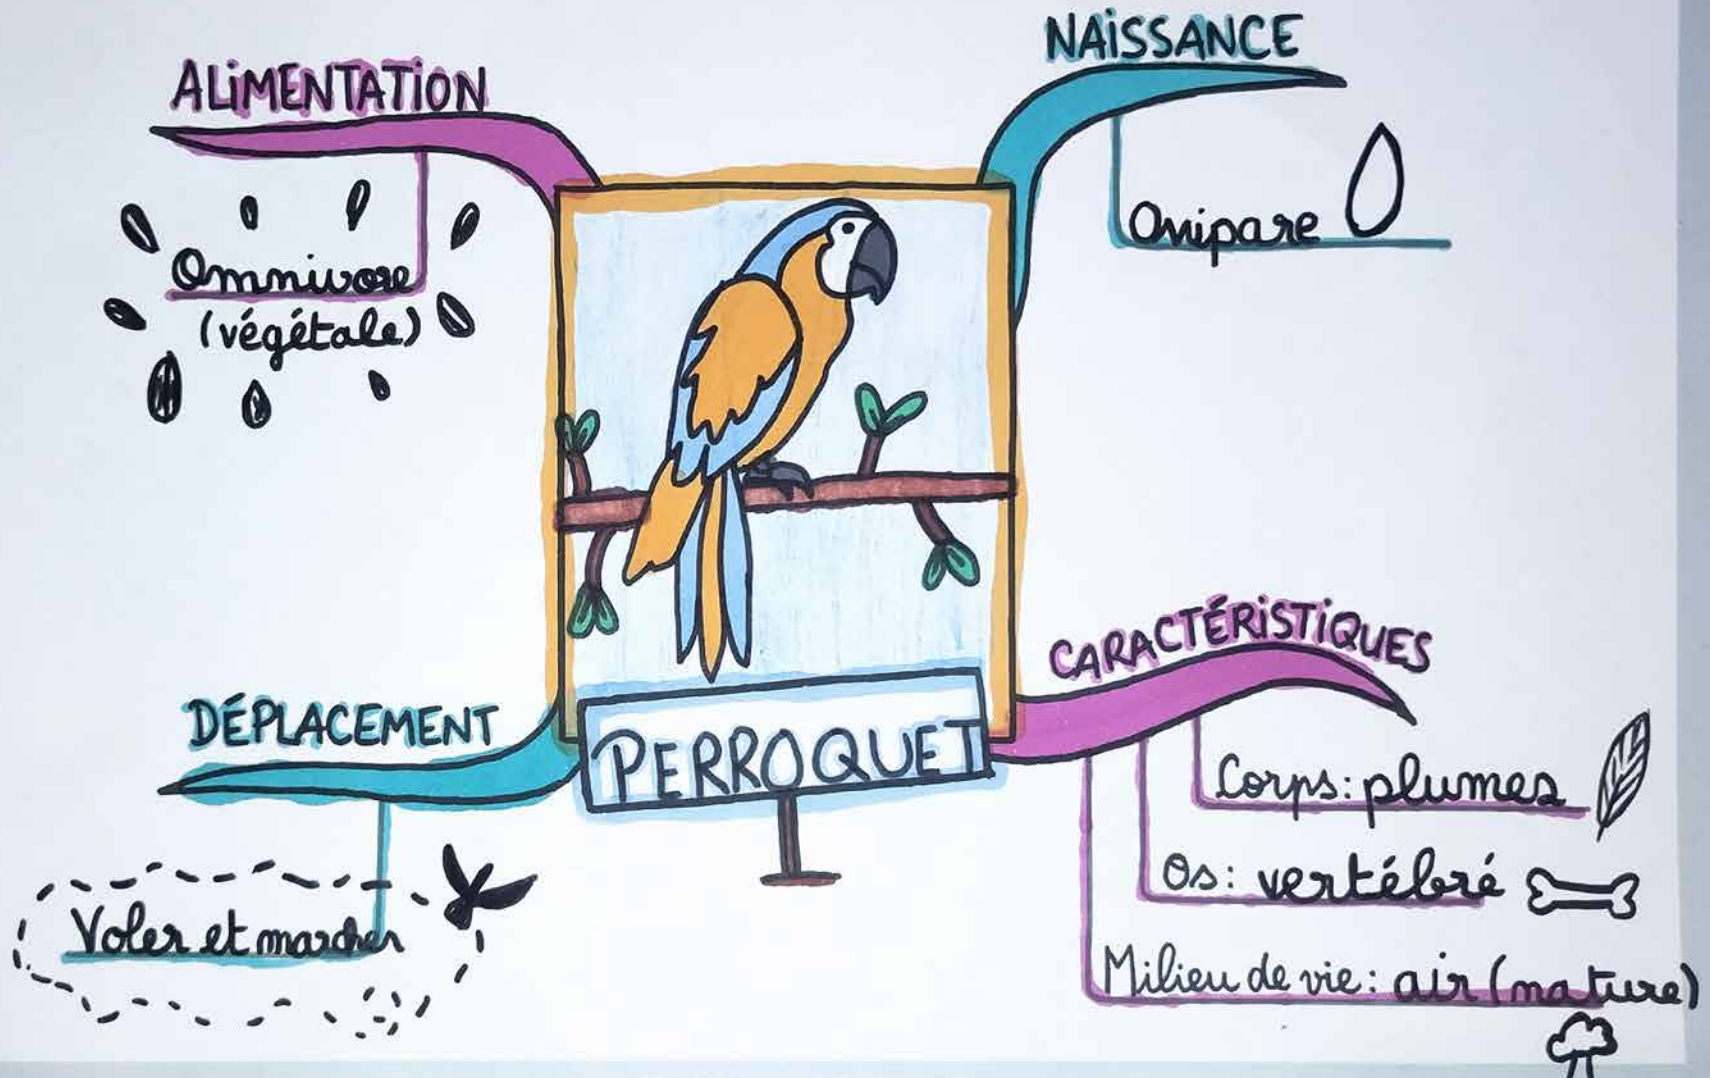 ALIMENTATION
Omnivore
(végétale)
NAISSANCE
Ovipare
PERROQUET
DÉPLACEMENT
Voler et marcher
CARACTÉRISTIQUES
Corps: plumes
Os: vertébré
Milieu de vie: air (nature)